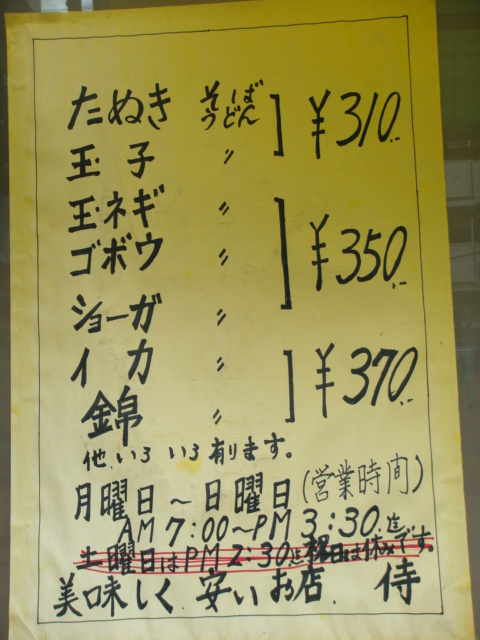 たぬき そば うどん ¥310.-
玉子 〃
玉ネギ 〃
ゴボウ 〃 ¥350.-
ショーガ 〃
イカ 〃 ¥370.-
錦 〃
他、いろいろ有ります。
月曜日～日曜日(営業時間)
AM 7:00～PM 3:30.迄
土曜日はPM 2:30迄 祝日は休みです。
美味しく 安いお店 侍